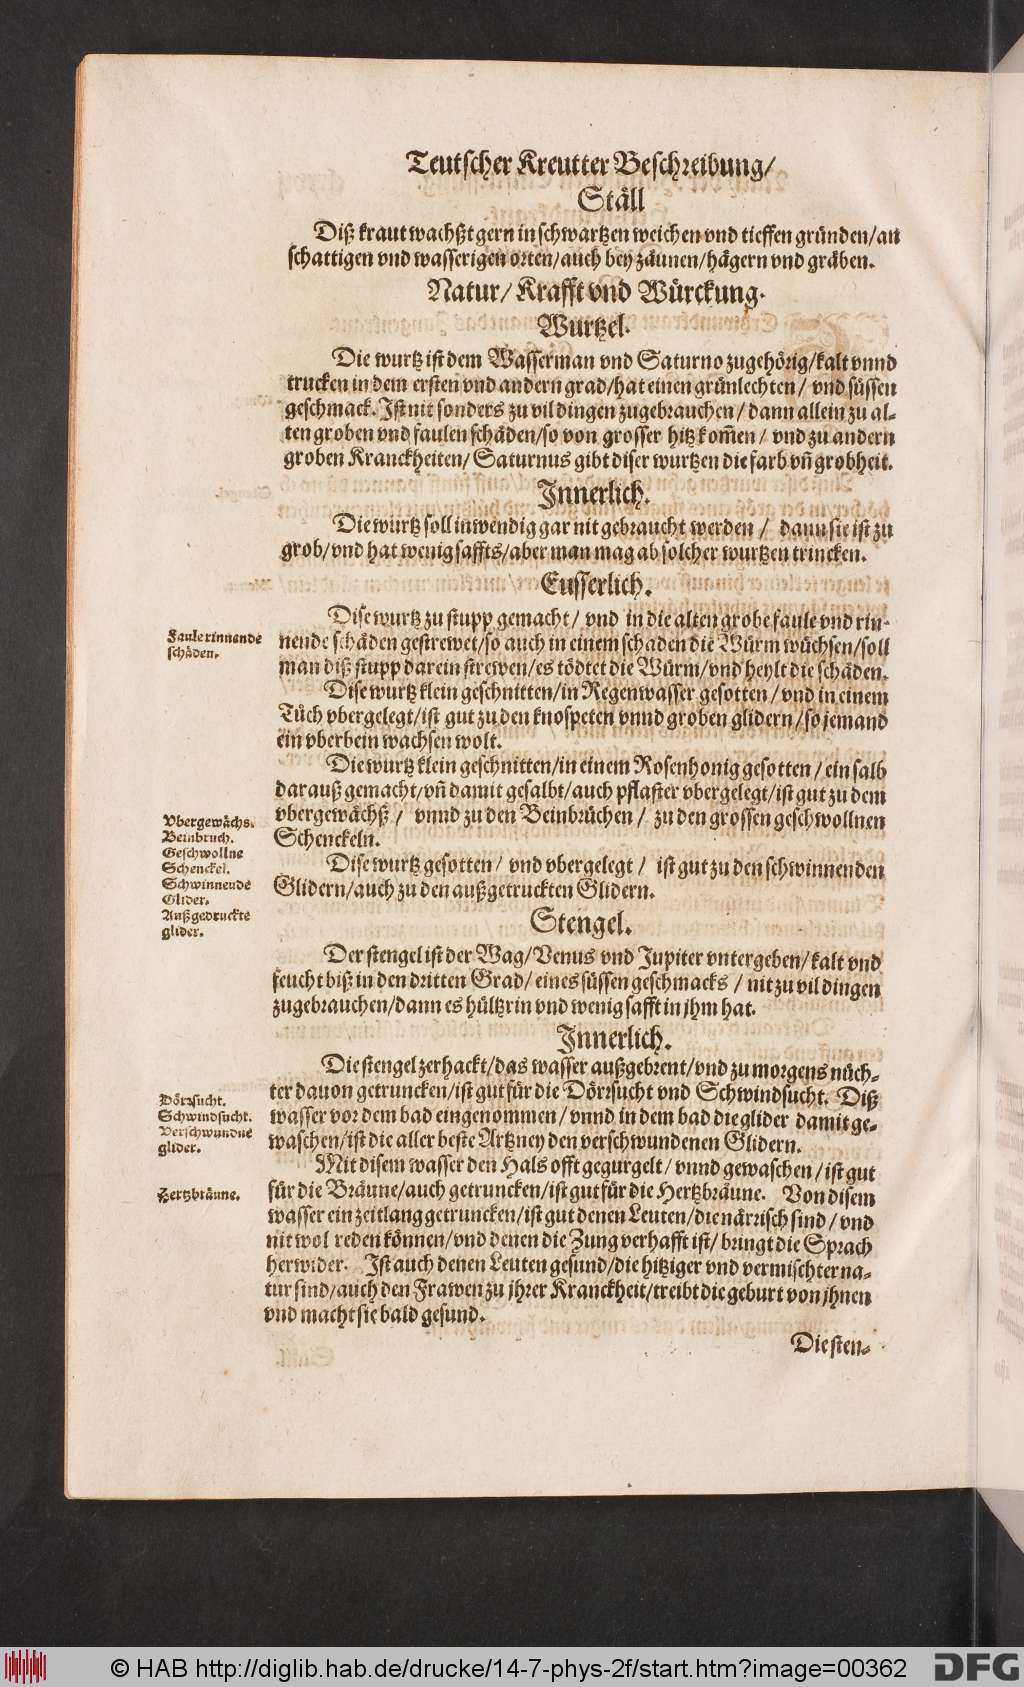 Teutscher Kreutter Beschreibung/
Ställ
Diß kraut wachßt gern in schwartzen weichen vnd tieffen gründen/an
schattigen vnd wasserigen orten/auch bey zäunen/hägern vnd gräben.
Natur/ Krafft vnd Würckung.
Wurtzel.
Die wurtz ist dem Wasserman vnd Saturno zugehörig/kalt vnnd
trucken in dem ersten vnd andern grad/hat einen grünlechten/ vnd süssen
geschmack. Ist nit sonders zu vil dingen zugebrauchen/ dann allein zu al-
ten groben vnd faulen schäden/so von grosser hitz kom̃en/ vnd zu andern
groben Kranckheiten/ Saturnus gibt diser wurtzen die farb vn̄ grobheit.
Innerlich.
Die wurtz soll inwendig gar nit gebraucht werden/ dann sie ist zu
grob/vnd hat wenig saffts/aber man mag ab solcher wurtzen trincken.
Eusserlich.
Dise wurtz zu stupp gemacht/ vnd in die alten grobe faule vnd rin-
nende schäden gestrewet/so auch in einem schaden die Würm wüchsen/soll
man diß stupp darein strewen/es tödtet die Würm/vnd heylt die schäden.
Faule rinnende
schäden.
Dise wurtz klein geschnitten/in Regenwasser gesotten/ vnd in einem
Tüch vbergelegt/ist gut zu den knospeten vnnd groben glidern/so jemand
ein vberbein wachsen wolt.
Die wurtz klein geschnitten/in einem Rosenhonig gesotten/ ein salb
darauß gemacht/vn̄ damit gesalbt/auch pflaster vbergelegt/ist gut zu dem
vbergewächß/ vnnd zu den Beinbrüchen/ zu den grossen geschwollnen
Schenckeln.
Vbergewächs.
Beinbruch.
Geschwollne
Schenckel.
Schwinnende
Glider.
Außgedruckte
glider.
Dise wurtz gesotten/ vnd vbergelegt/ ist gut zu den schwinnenden
Glidern/auch zu den außgetruckten Glidern.
Stengel.
Der stengel ist der Wag/Venus vnd Jupiter vntergeben/kalt vnd
feucht biß in den dritten Grad/ eines süssen geschmacks/ nit zu vil dingen
zugebrauchen/dann es hültzrin vnd wenig safft in jhm hat.
Innerlich.
Die stengel zerhackt/das wasser außgebrent/vnd zu morgens nüch-
ter dauon getruncken/ist gut für die Dörrsucht vnd Schwindsucht. Diß
wasser vor dem bad eingenommen/ vnnd in dem bad die glider damit ge-
waschen/ist die aller beste Artzney den verschwundenen Glidern.
Dörrsucht.
Schwindsucht.
Verschwundne
glider.
Mit disem wasser den Hals offt gegurgelt/ vnnd gewaschen/ist gut
für die Bräune/auch getruncken/ist gut für die Hertzbräune. Von disem
wasser ein zeitlang getruncken/ist gut denen Leuten/die närrisch sind/ vnd
nit wol reden können/vnd denen die Zung verhafft ist/ bringt die Sprach
herwider. Ist auch denen Leuten gesund/die hitziger vnd vermischter na-
tur sind/auch den Frawen zu jhrer Kranckheit/treibt die geburt von jhnen
vnd macht sie bald gesund.
Hertzbräune.
Die sten-
© HAB http://diglib.hab.de/drucke/14-7-phys-2f/start.htm?image=00362
DFG